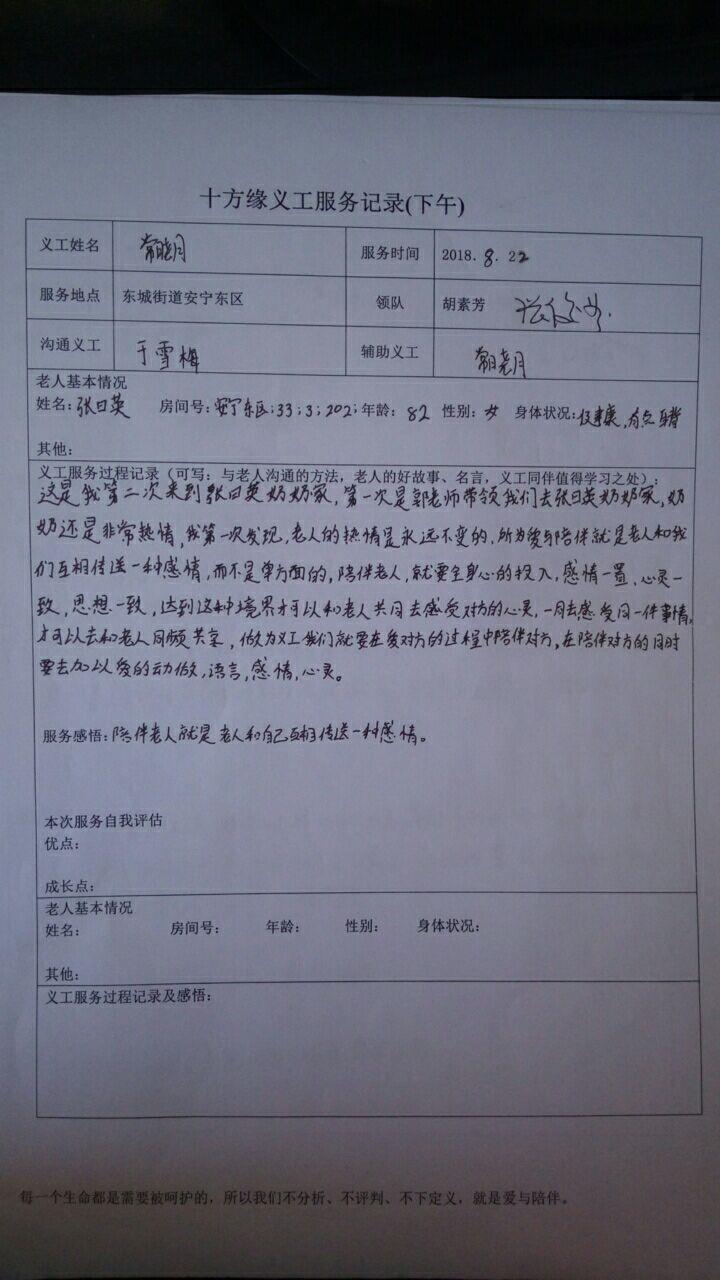 十方缘义工服务记录(下午)
义工姓名 常晓月 服务时间 2018.8.22
服务地点 东城街道安宁东区 领队 胡素芳
沟通义工 于雪梅 辅助义工 常晓月
老人基本情况
姓名:张日英 房间号:安宁东区;33;3;202;年龄:82 性别:女 身体状况:健康,有点耳背
其他:
义工服务过程记录(可写:与老人沟通的方法,老人的好故事、名言,义工同伴值得学习之处):
这是我第二次来到张日英奶奶家,第一次是郭老师带领我们去张日英奶奶家,奶
奶还是非常热情,我第一次发现,老人的热情是永远不变的,所为爱与陪伴就是老人和我
们互相传送一种感情,而不是单方面的,陪伴老人,就要全身心的投入,感情一置,心灵一
致,思想一致,达到这种境界才可以和老人共同去感受对方的心灵,一同去感受同一件事情,
才可以去和老人同频共享,做为义工我们就要在爱对方的过程中陪伴对方,在陪伴对方的同时
要去加以爱的动做,语言,感情,心灵。
服务感悟:陪伴老人就是老人和自己互相传送一种感情。
本次服务自我评估
优点:
成长点:
老人基本情况
姓名: 房间号: 年龄: 性别: 身体状况:
其他:
义工服务过程记录及感悟:
每一个生命都是需要被呵护的,所以我们不分析、不评判、不下定义,就是爱与陪伴。